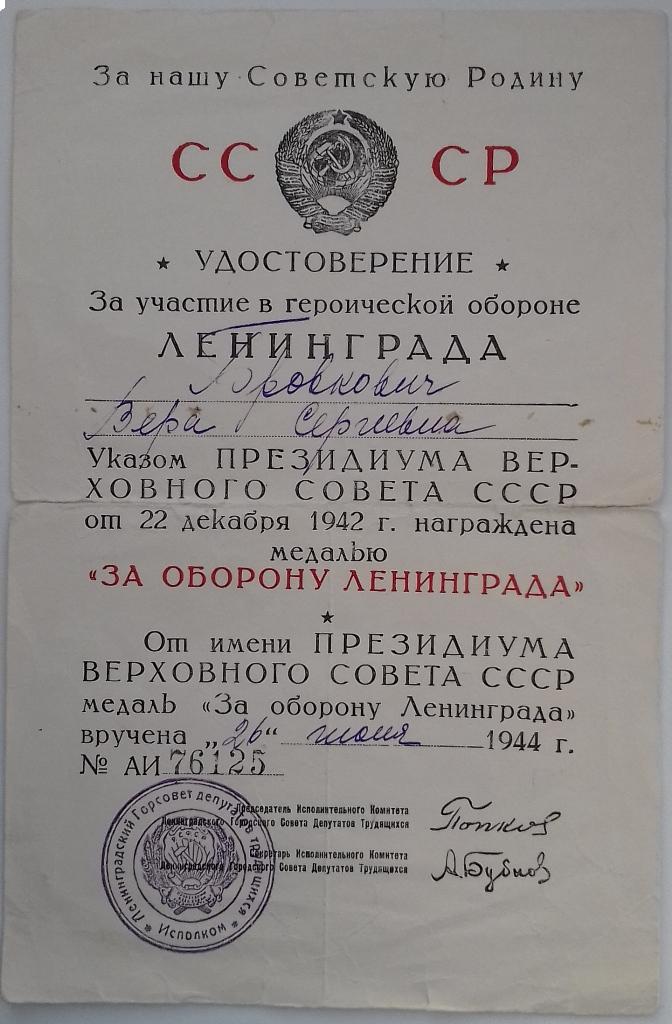 За нашу Советскую Родину
СССР
★ УДОСТОВЕРЕНИЕ ★
За участие в героической обороне
ЛЕНИНГРАДА
Вера Сергеевна
Указом ПРЕЗИДИУМА ВЕР-
ХОВНОГО СОВЕТА СССР
от 22 декабря 1942 г. награждена
медалью
«ЗА ОБОРОНУ ЛЕНИНГРАДА»
★
От имени ПРЕЗИДИУМА
ВЕРХОВНОГО СОВЕТА СССР
медаль «За оборону Ленинграда»
вручена „26“ июня 1944 г.
№ АИ 76125
Председатель Исполнительного Комитета
Ленинградского Городского Совета Депутатов Трудящихся
Попков
Секретарь Исполнительного Комитета
Ленинградского Городского Совета Депутатов Трудящихся
А.Бубнов
Ленинградский Горсовет депутатов трудящихся
Исполком
РСФСР